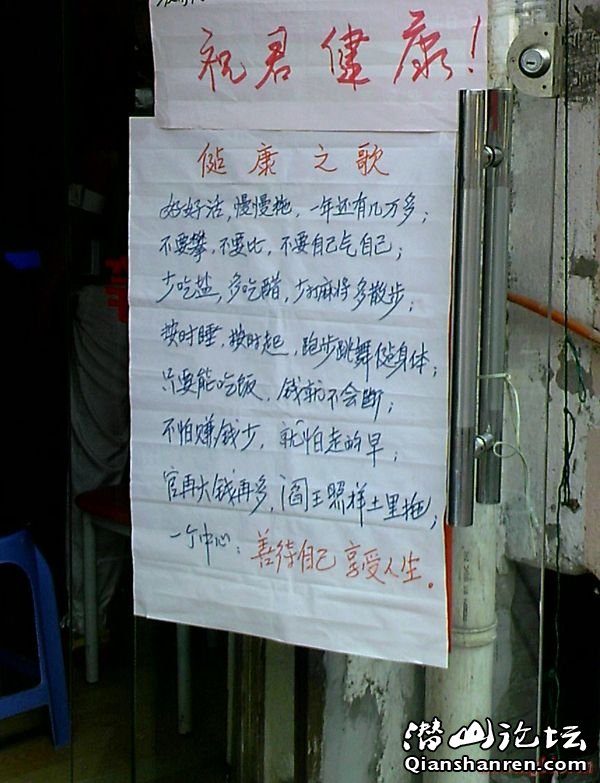 祝君健康！
健康之歌
好好活，慢慢拖，一年还有几万多；
不要攀，不要比，不要自己气自己；
少吃盐，多吃醋，少打麻将多散步；
按时睡，按时起，跑步跳舞健身体；
只要能吃饭，钱就不会断；
不怕赚钱少，就怕走的早；
官再大钱再多，阎王照样土里拖；
一个中心：善待自己 享受人生。
潜山论坛
Qianshanren.com